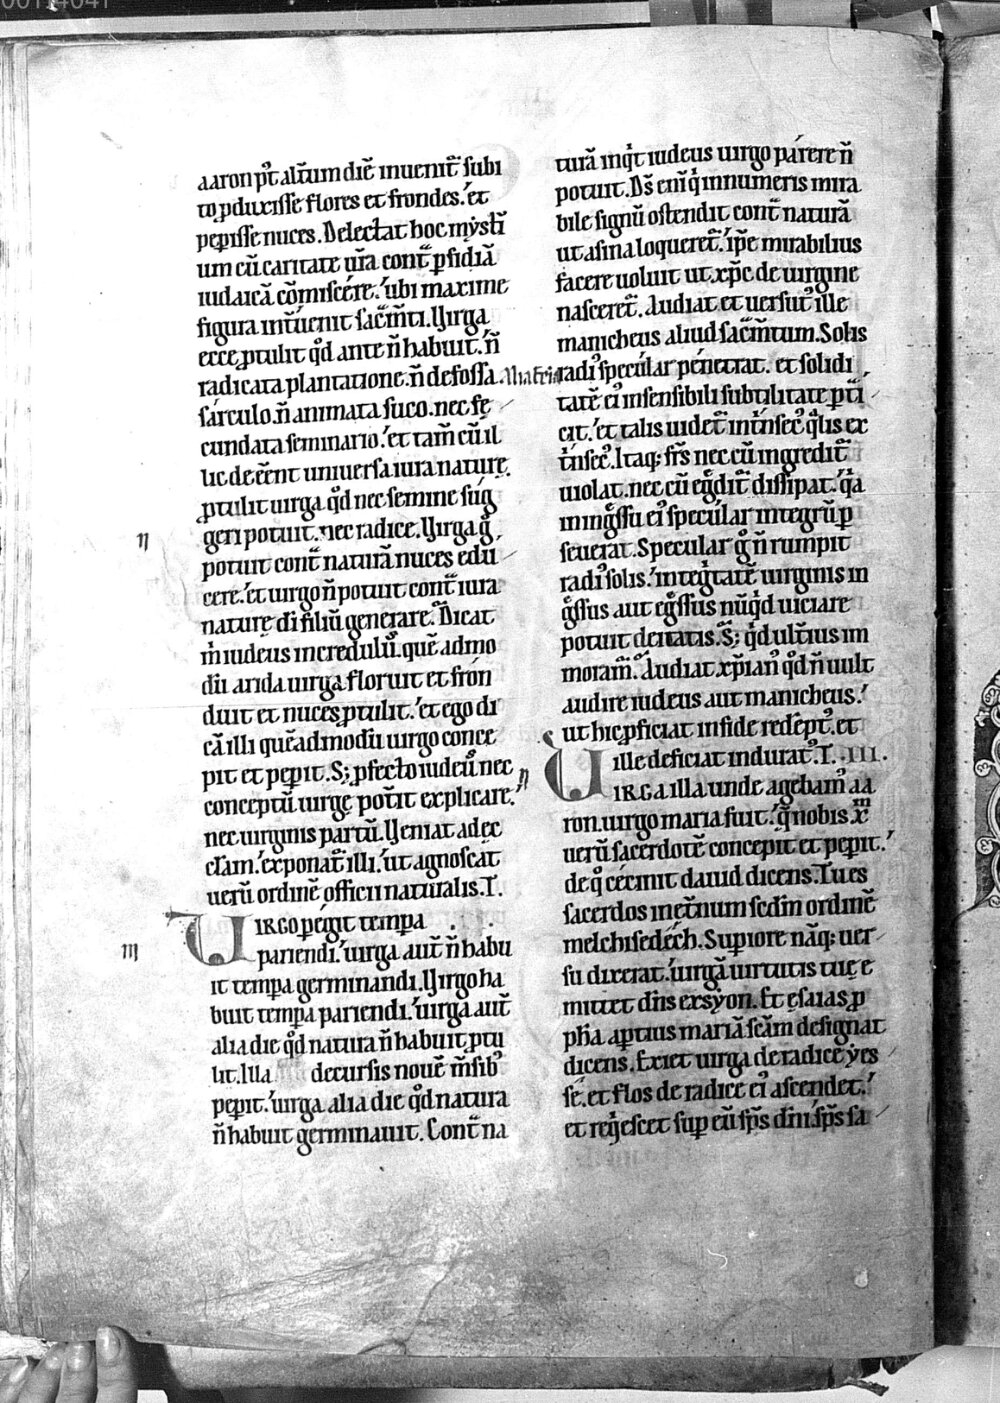 aaron pꝰt altͥum diē inuenit᷑ subi
to ꝓduxisse flores et frondes. et
peꝑisse nuces. Delectat hoc mýsti᷑
um cū caritate ur̄a cont᷑ ꝑfidiā
iudaicā cōmiscére. ubi maxime
figura int᷑uenit sac̄mti. Uirga
ecce ꝓtulit qd̄ ante n̄ habuit. n̄
radicata plantatione. n̄ defossa
sárculo. n̄ animata suco. nec fę
cundata seminario. et tam̄ cū il
lic deēent uniuersa iura naturę.
ꝓtulit uirga qd̄ nec semine súg
geri potuit. nec radice. Uirga g̊
potuit cont᷑ naturā nuces edu
cere. et uirgo n̄ potuit cont᷑ iura
naturę di filiū generare. Dicat
m̄ iudeus incredulꝰ. quē admo
dū arida uirga floruit et frón
duit et nuces ꝓtulit. et ego di
cā illi quēadmodū uirgo conce
pit et peꝑit. S; ꝓfecto iudeꝰ nec
conceptū uirgę pot᷑it explicare.
nec uirginis partū. Ueniat ad ec
clam. exponat᷑ illi. ut agnoscat
uerū ordinē officii naturalis. T.
UIRGO peg̓it tempa
pariendi. uirga aut̄ n̄ habu
it tempa germinandi. Uirgo ha
buit tempa pariendi. uirga aut̄
alia die qd̄ natura n̄ habuit ꝓtu
lit. Illa decursis nouē m̄sibꝰ
peꝑit. uirga alia die qd̄ natura
n̄ habuit germinauit. Cont᷑ na
turā inqͥt iudeus uirgo párere n̄
potuit. Ds̄ eni̅ qͥ innumeris mira
bile signū ostendit cont᷑ naturā
ut asina loqueret᷑. ip̄e mirabilius
facere uoluit ut xp̄c de uirgine
nasceret᷑. Audiat et uersutꝰ ille
manicheus aliud sac̄mtum. Solis
radiꝰ speculár pénetrat. et solidi
tatē eiꝰ insensibili subtilitate ꝑt᷑i
cit. et talis uidet᷑ int᷑nsecꝰ qͣlis ex
t᷑nsecꝰ. Itaq; fr̄s nec cū ingredit᷑
uiolat. nec cū eg̓dit᷑ dissipat. qͥa
in ing̓ssu eiꝰ speculár integrū ꝑ
seuerat. Specular g̊ n̄ rumpit
radiꝰ solis. integ̓tatē uirginis in
g̓ssus aut eg̓ssus nūqͥd uiciare
potuit deitatis. S; qͥd ultͥius im
moram᷑. Audiat xp̄ianꝰ qd̄ n̄ uult
audire iudeus aut manicheus.
ut hic ꝓficiat in fide redēptꝰ. et
ille deficiat induratꝰ. T. III.
UIRGA illa unde agebam᷑ aa
ron. uirgo maria fuit. q̄ nobis xm̄
uerū sacerdotē concepit et peꝑit.
de qͦ cécinit dauid dicens. Tu es
sacerdos inet᷑num sedm̄ ordinē
melchisedéch. Supiore nāq; uer
su dixerat. uirgā uirtutis tuę e
mittet dn̄s exsýon. Et esaias ꝓ
pha aptius mariā sc̄am designat
dicens. Exiet uirga de radice ýes
sé. et flos de radice eiꝰ ascendet.
et reqͥescet sup eū sp̄s dn̄i. sp̄s sa